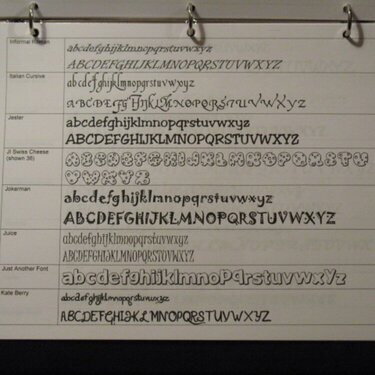 Informal Roman
abcdefghijklmnopqrstuvwxyz
ABCDEFGHIJKLMNOPQRSTUVWXYZ
Italian Cursive
abcdefghijklmnopqrstuvwxyz
ABCDEFGHIJKLMNOPQRSTUVWXYZ
Jester
abcdefghijklmnopqrstuvwxyz
ABCDEFGHIJKLMNOPQRSTUVWXYZ
JI Swiss Cheese
(shown 36)
ABCDEFGHIJKLMNOPQRSTU
VWXYZ
Jokerman
abcdefghijklmnopqrstuvwxyz
ABCDEFGHIJKLMNOPQRSTUVWXYZ
Juice
abcdefghijklmnopqrstuvwxyz
ABCDEFGHIJKLMNOPQRSTUVWXYZ
Just Another Font
abcdefghijklmnoPqrstuvwxYz
Kate Berry
abcdefghijklmnopqrstuvwxyz
ABCDEFGHIJKLMNOPQRSTUVWXYZ